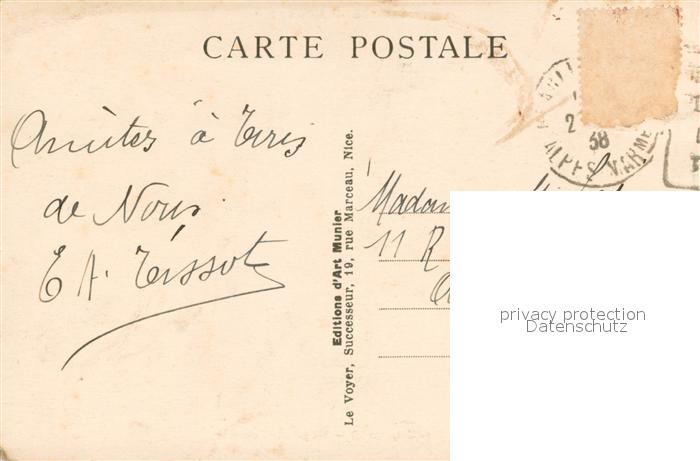 CARTE POSTALE
Amitiés à Tous
de Nous
E A. Tissot
Editions d'Art Munier
Le Voyer, Successeur, 19, rue Marceau, Nice.
2
38
ALPES MARME
Madam
11 R
privacy protection
Datenschutz